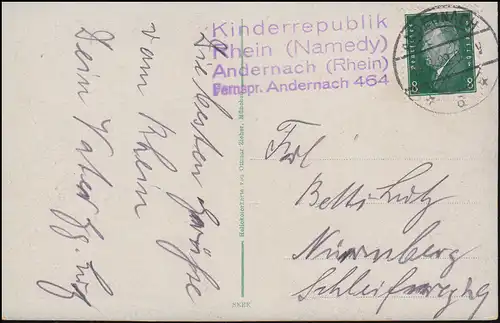 Kinderrepublik
Rhein (Namedy)
Andernach (Rhein)
Fernspr. Andernach 464
8 8
Die besten Grüße
vom Rhein
Dein Vater
Frl
Betti Lutz
Nürnberg
Schleifweg